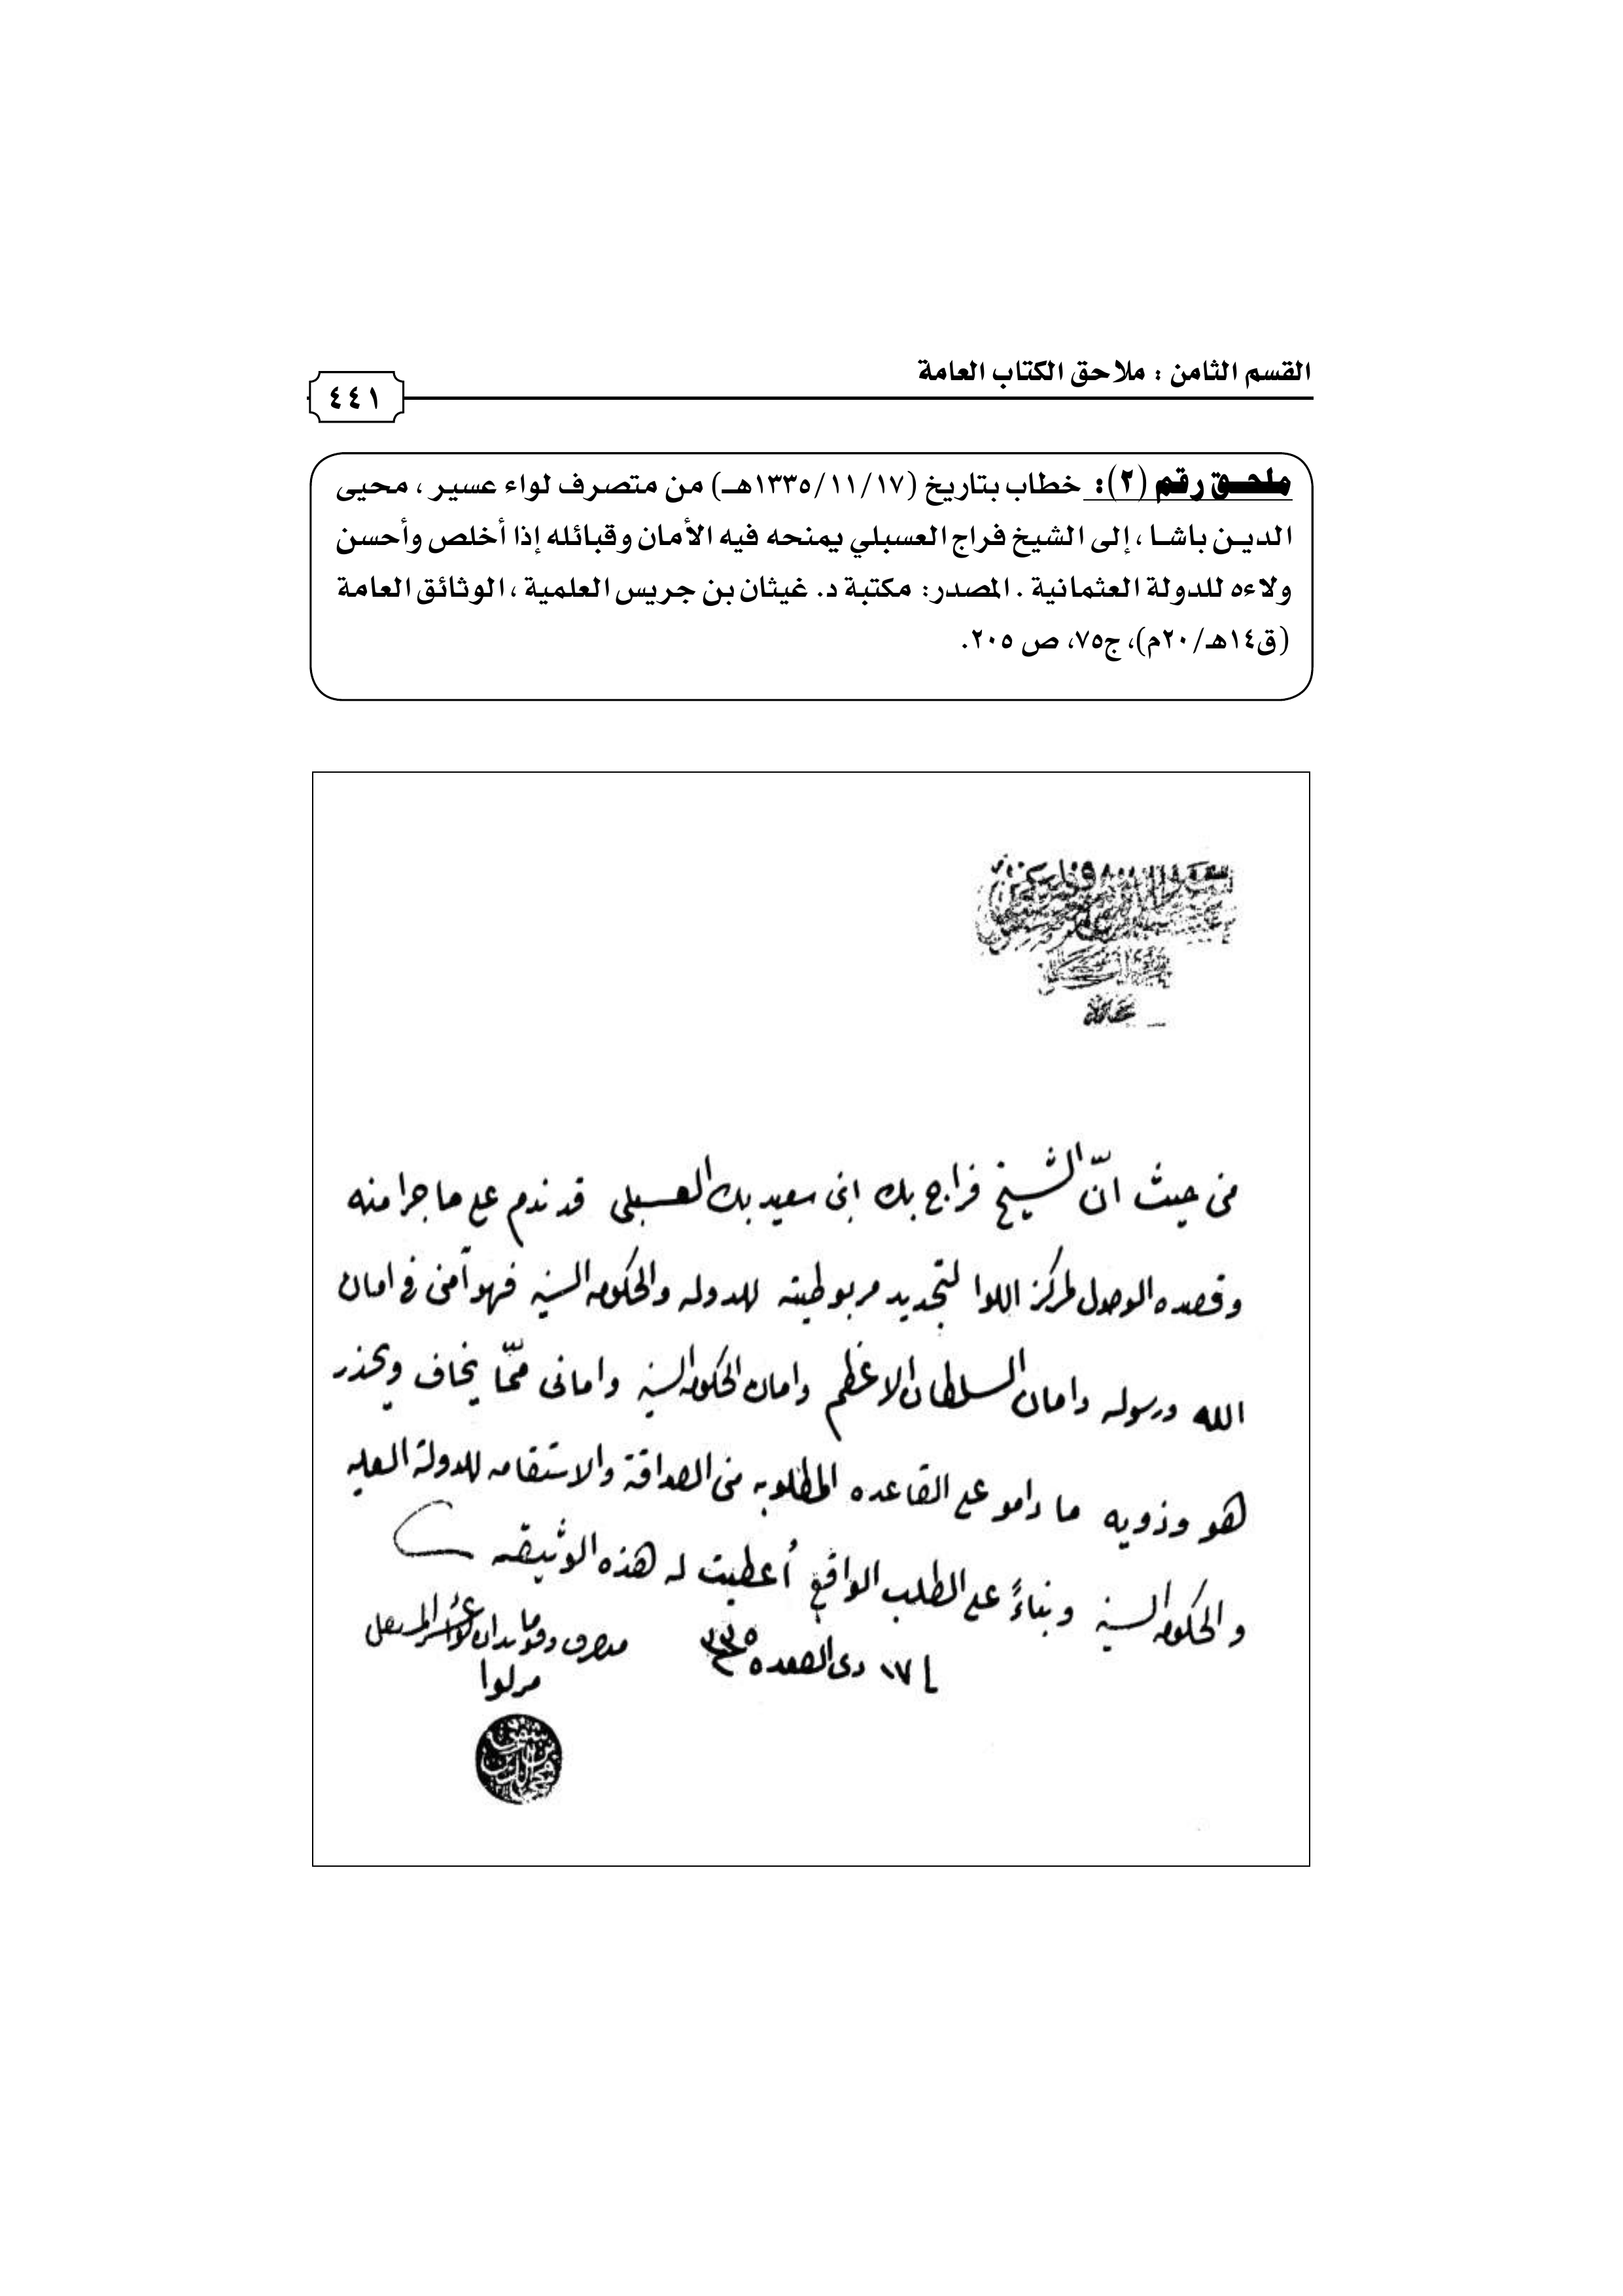 القسم الثامن : ملاحق الكتاب العامة
٤٤١
ملحـق رقم (٢): خطاب بتاريخ (١٣٣٥/١١/١٧هـ) من متصرف لواء عسير ، محيى
الديـن باشـا ، إلى الشيخ فراج العسبلي يمنحه فيه الأمان وقبائله إذا أخلص وأحسن
ولاءه للدولة العثمانية . المصدر: مكتبة د. غيثان بن جريس العلمية ، الوثائق العامة
(ق١٤هـ/٢٠م)، ج٧٥، ص ٢٠٥.
من حيث انّ الشيخ فراج بك ابن سعيد بك العسبلي قد ندم على ما جرا منه
وقصده الوصول لمركز اللوا لتجديد مربوطيته للدوله والحكومه السنيه فهو آمن في امان
الله ورسوله وامان السلطان الاعظم وامان الحكومه السنيه واماني ممّا يخاف ويحذر
هو وذويه ما دامو على القاعده المطلوبه من الصداقة والاستقامه للدولة العليه
والحكومه السنيه وبناءً على الطلب الواقع أعطيت له هذه الوثيقه
١٧ ذى القعده ٣٣٥
متصرف وقومندان
مرلوا